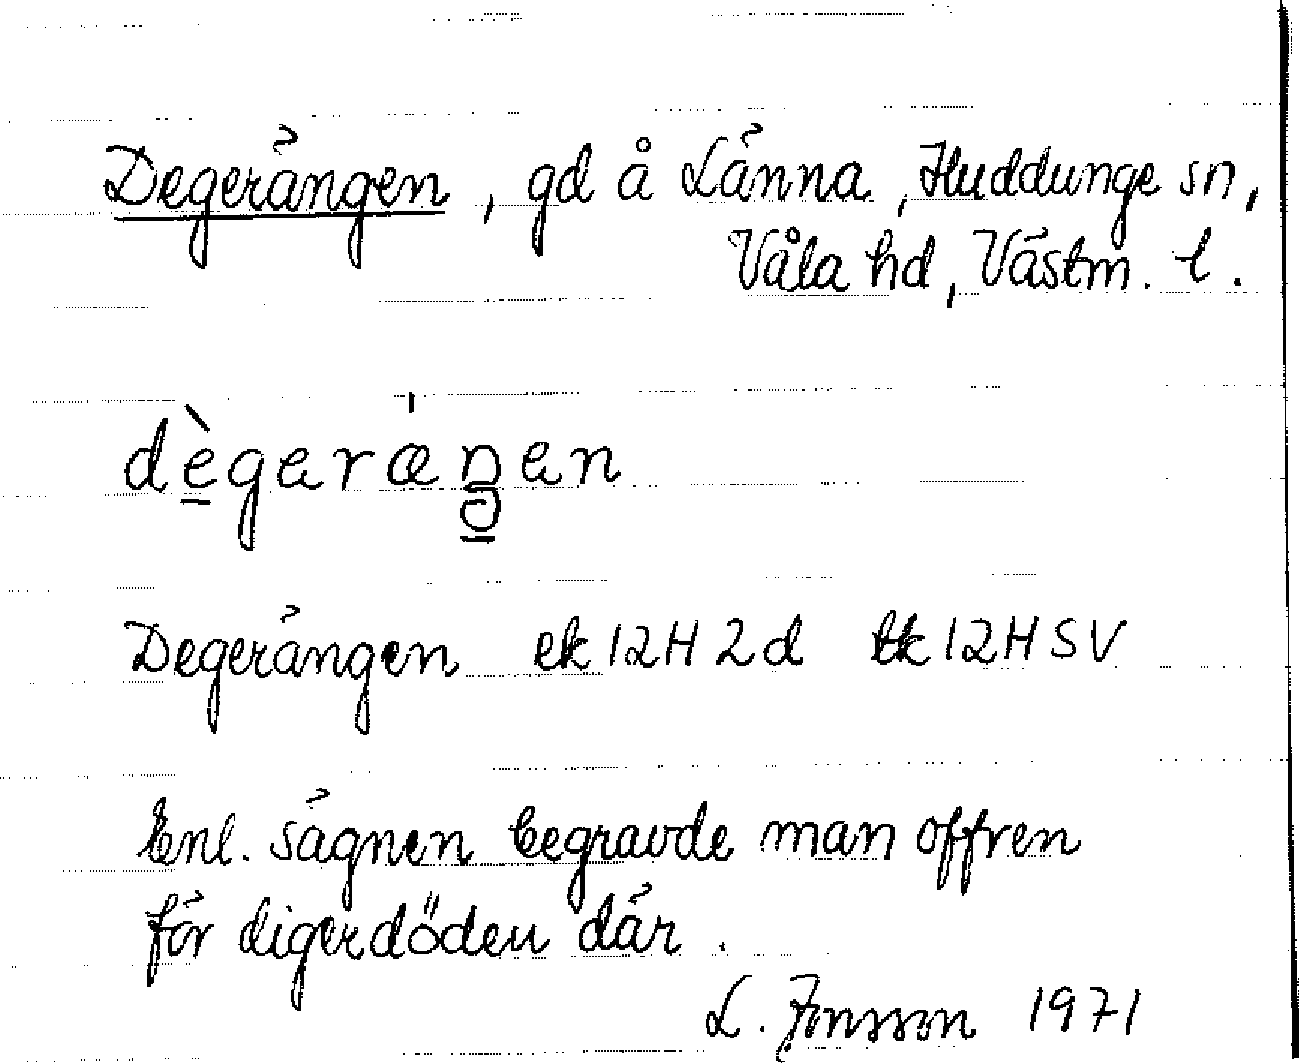 Degerängen, gd å Länna, Huddunge sn,
Våla hd, Västm. l.
dègeräŋen
Degerängen ek 12H2d tk 12HSV
Enl. sägnen begravde man offren
för digerdöden där.
L. Jonsson 1971